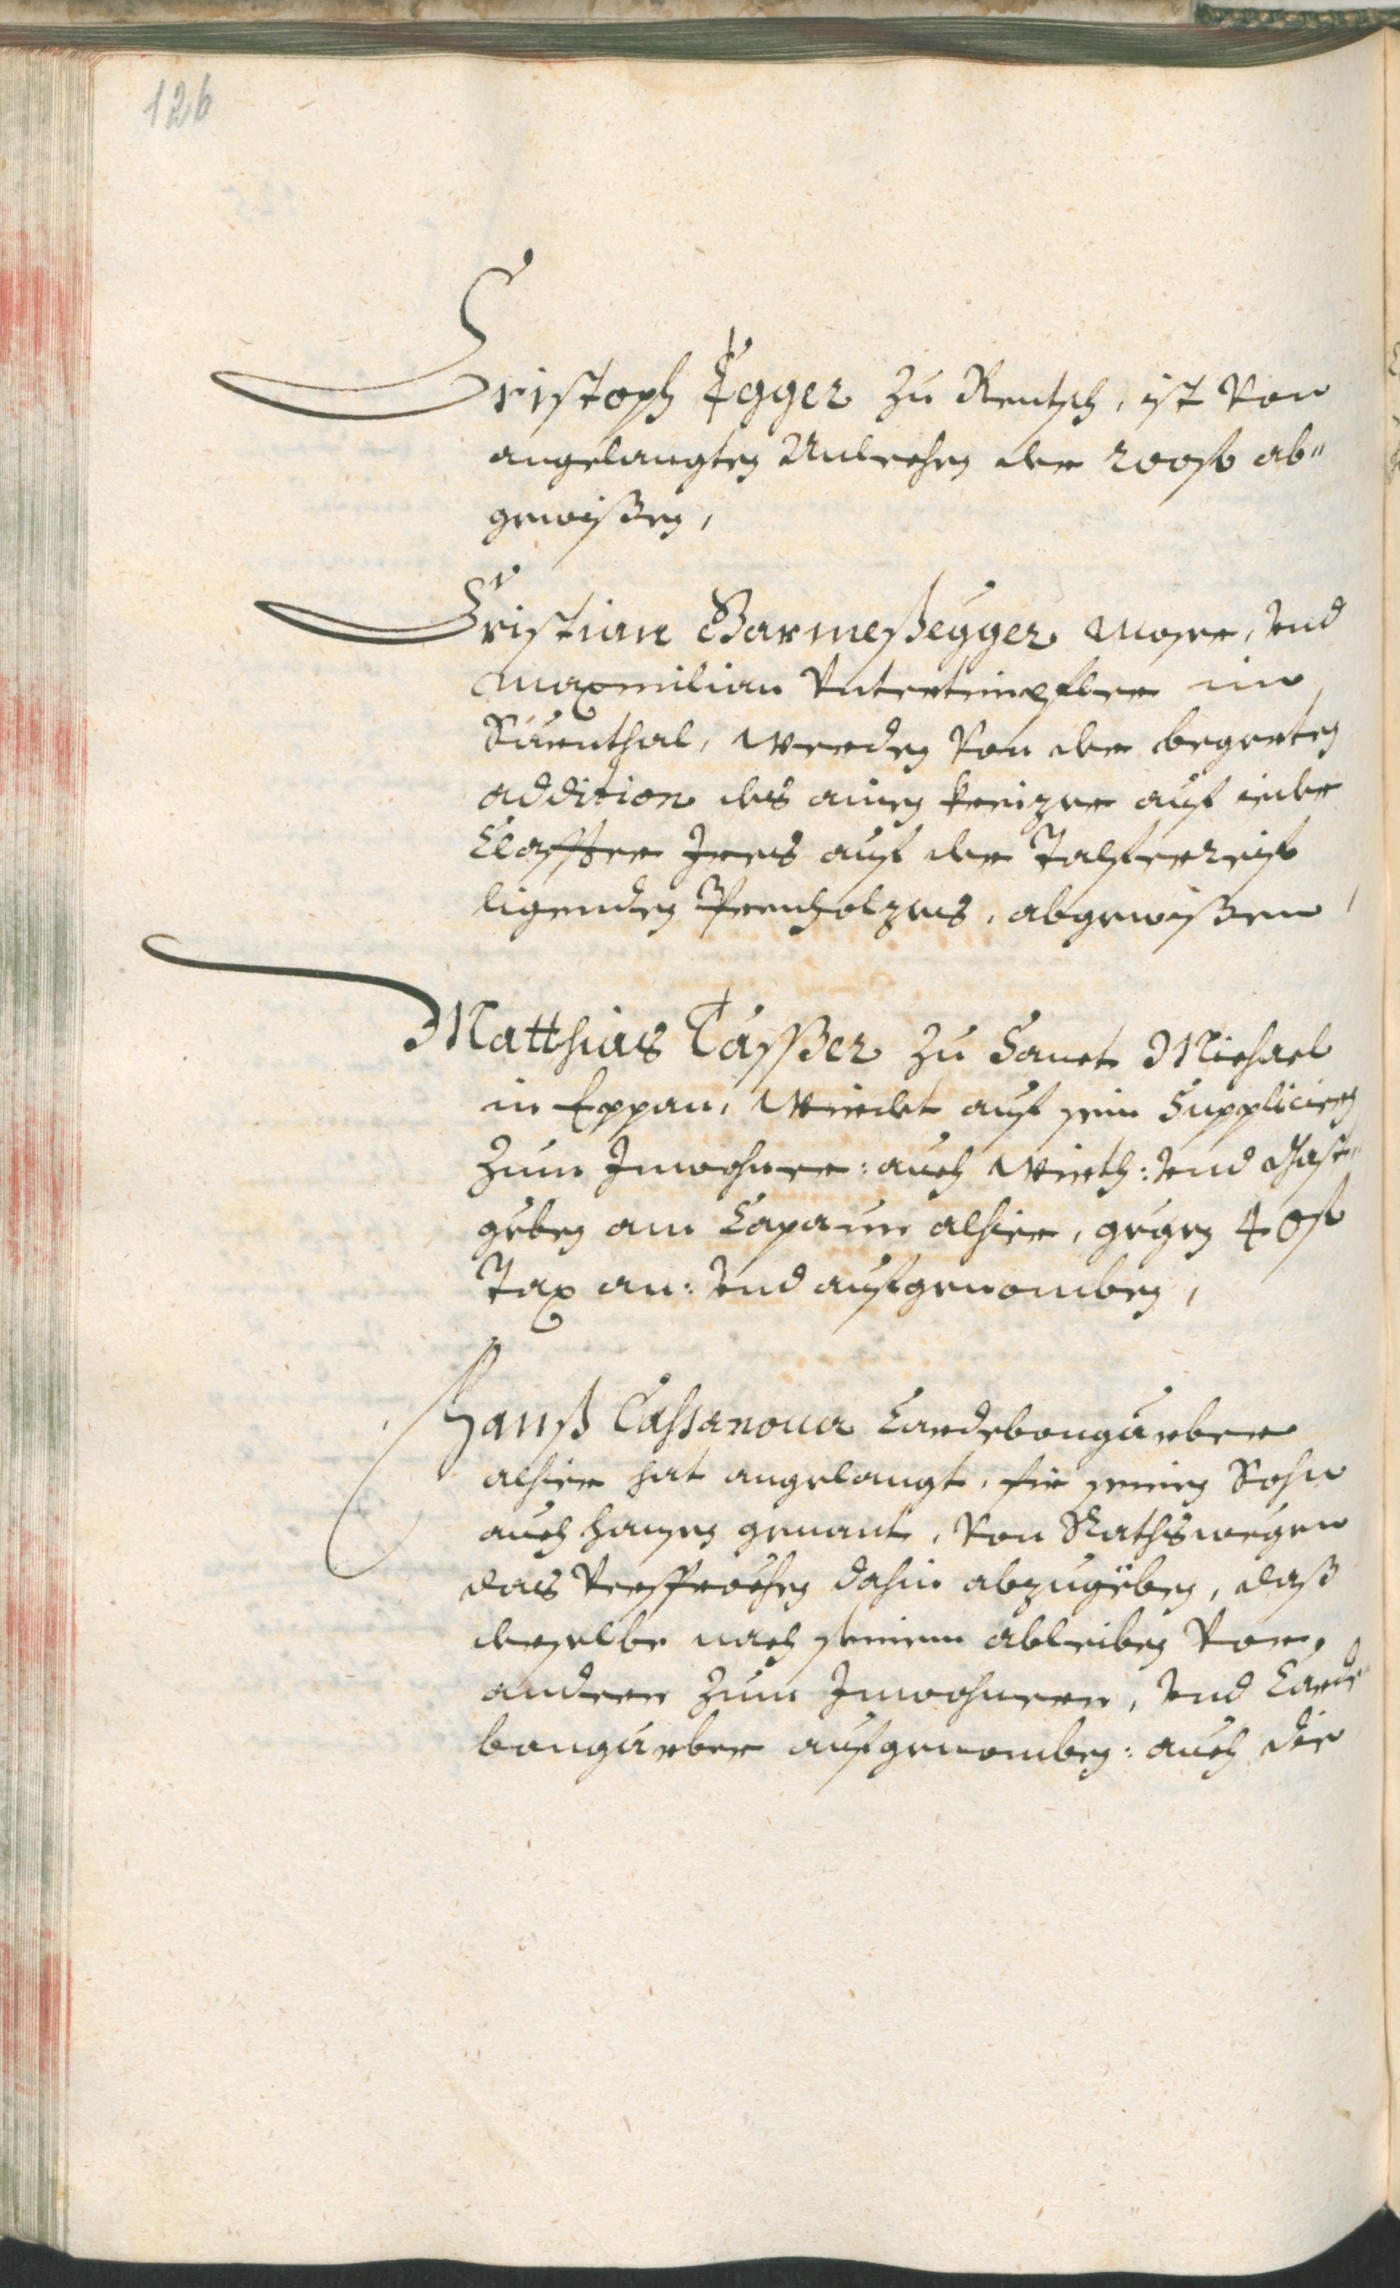 126
Cristoph Egger zu Rentsch, ist von
angelangten Anlechen der 200 fl ab„
gewißen,
Cristian Barmeßegger Moser, vnd
Maxmilian Vntertimpfler im
Särnthal, werden von der begerten
addition des ainen kreizer auf iede
Claffter Ires auf der Talferreist
ligenden Prenholzes, abgewißen,
Matthias Casßer zu Sanct Michael
in Eppan, wirdet auf sein Suppliciern
zum Inwohner: auch Wirth: vnd Gast„
geben am Capaun alhier, gegen 40 fl
Tax an: vnd aufgenomben,
Hanß Cassanoua Lardebongärber
alhier hat angelangt, fir seinen Sohn
auch Hansen genant, von Rathswegen
das Versprechen dahin abzugeben, daß
derselbe nach seinem ableiben vor
andern zum Inwohnern, vnd Larde
bongärber aufgenomben: auch die